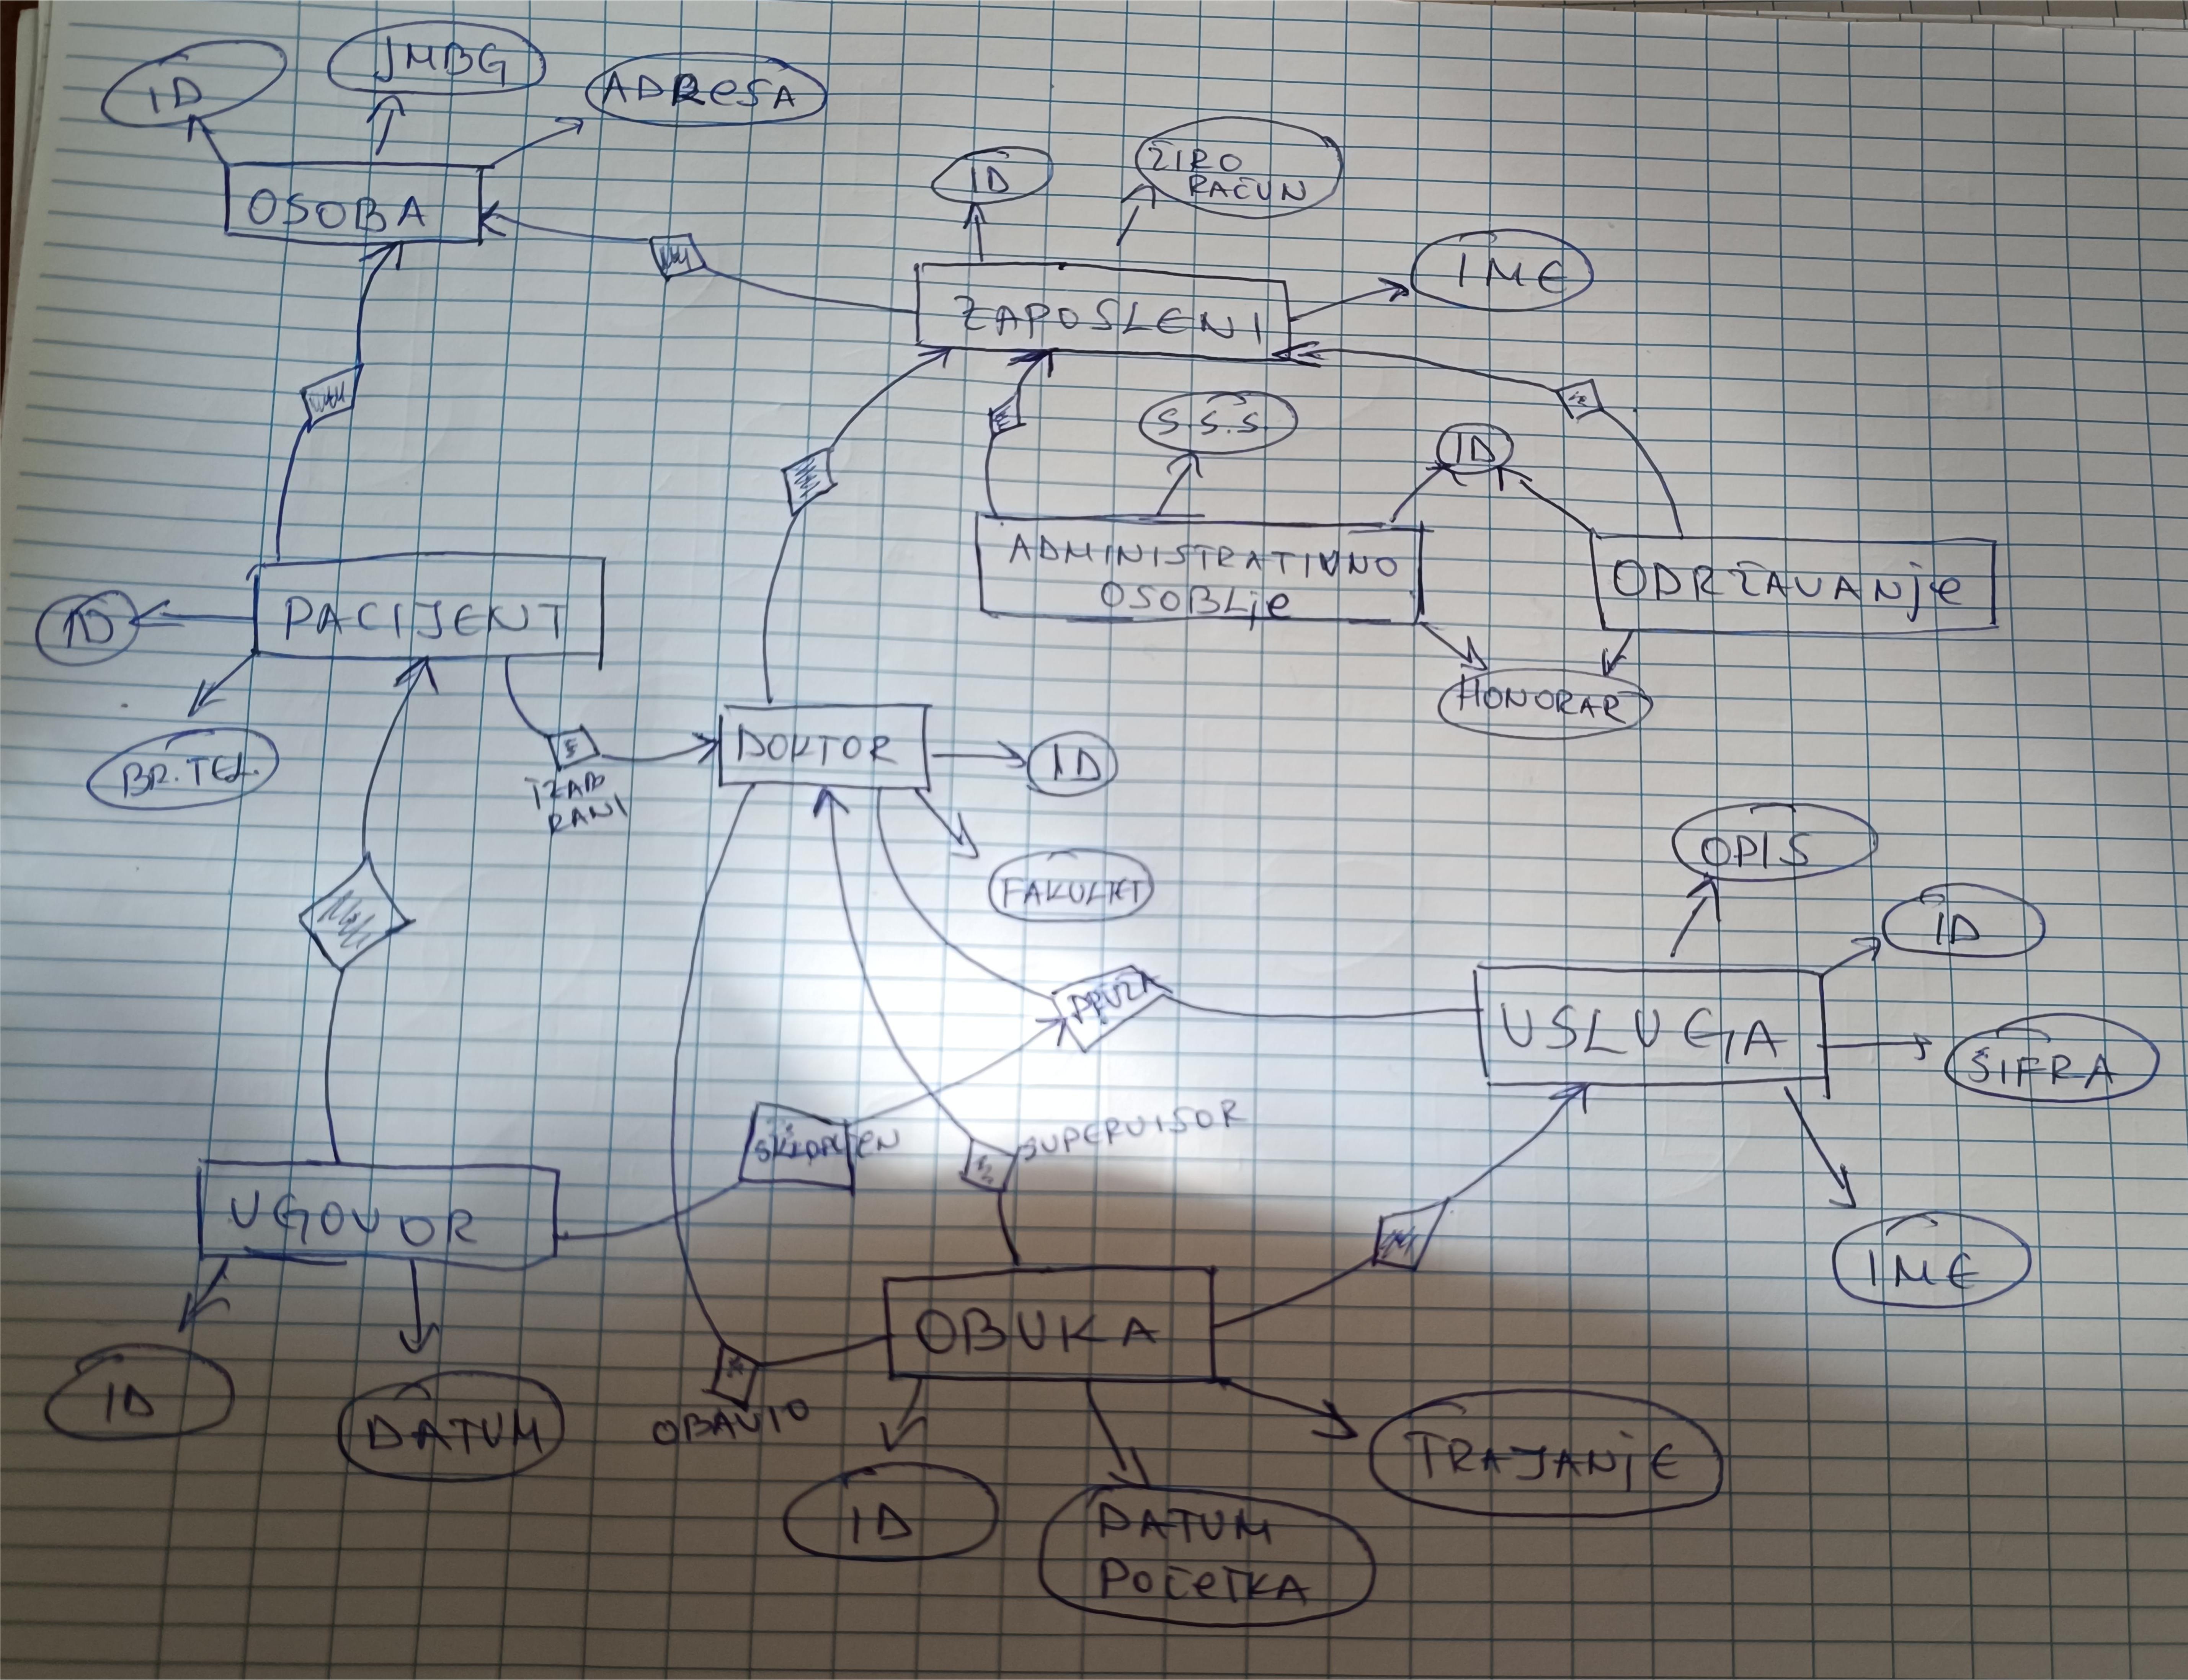 ID
JMBG
ADRESA
OSOBA
ID
ŽIRO
RAČUN
IME
ZAPOSLENI
S.S.S.
ID
ADMINISTRATIVNO
OSOBLJE
ODRŽAVANJE
HONORAR
PACIJENT
ID
BR.TEL.
IZAB
RANI
DOKTOR
ID
FAKULTET
OPIS
ID
PRUŽA
USLUGA
ŠIFRA
IME
SKLOPLJEN
SUPERVISOR
UGOVOR
ID
DATUM
OBUKA
OBAVIO
ID
DATUM
POČETKA
TRAJANJE